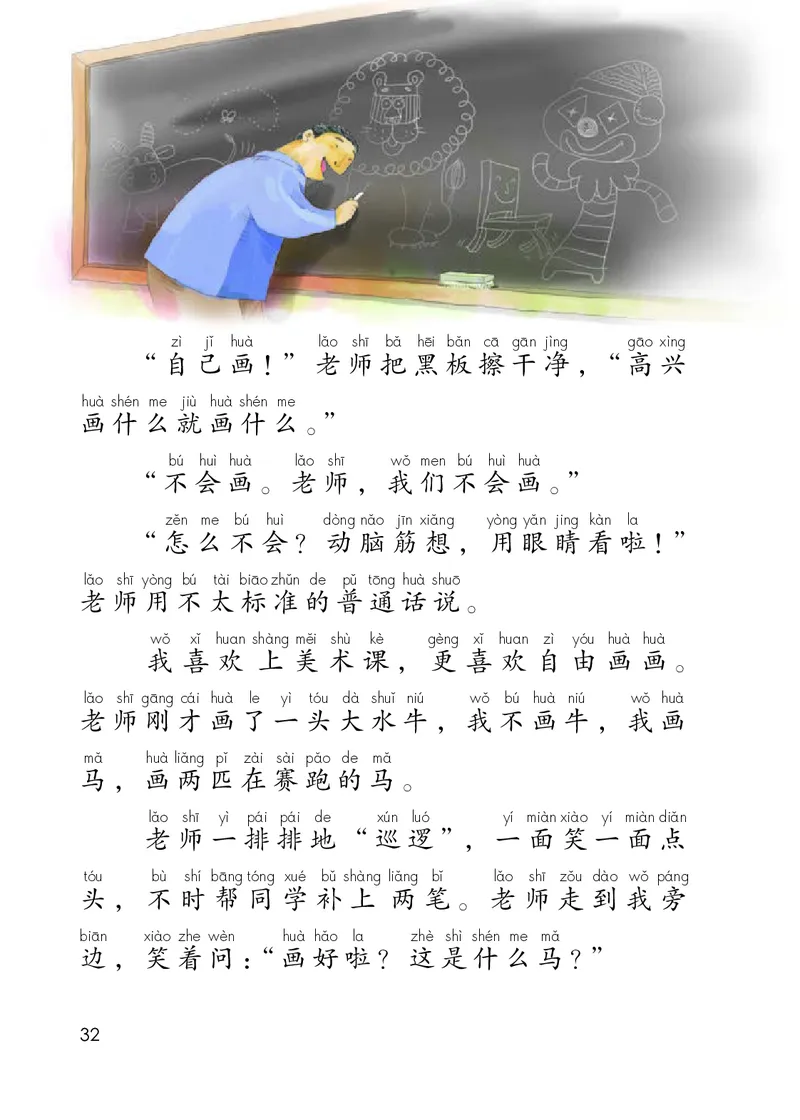 zì jǐ huà lǎo shī bǎ hēi bǎn cā gān jìng gāo xìng
“自己画！”老师把黑板擦干净，“高兴
huà shén me jiù huà shén me
画什么就画什么。”
bú huì huà lǎo shī wǒ men bú huì huà
“不会画。老师，我们不会画。”
zěn me bú huì dòng nǎo jīn xiǎng yòng yǎn jing kàn la
“怎么不会？动脑筋想，用眼睛看啦！”
lǎo shī yòng bú tài biāo zhǔn de pǔ tōng huà shuō
老师用不太标准的普通话说。
wǒ xǐ huan shàng měi shù kè gèng xǐ huan zì yóu huà huà
我喜欢上美术课，更喜欢自由画画。
lǎo shī gāng cái huà le yì tóu dà shuǐ niú wǒ bú huà niú wǒ huà
老师刚才画了一头大水牛，我不画牛，我画
mǎ huà liǎng pǐ zài sài pǎo de mǎ
马，画两匹在赛跑的马。
lǎo shī yì pái pái de xún luó yí miàn xiào yí miàn diǎn
老师一排排地“巡逻”，一面笑一面点
tóu bù shí bāng tóng xué bǔ shàng liǎng bǐ lǎo shī zǒu dào wǒ páng
头，不时帮同学补上两笔。老师走到我旁
biān xiào zhe wèn huà hǎo la zhè shì shén me mǎ
边，笑着问：“画好啦？这是什么马？”
32